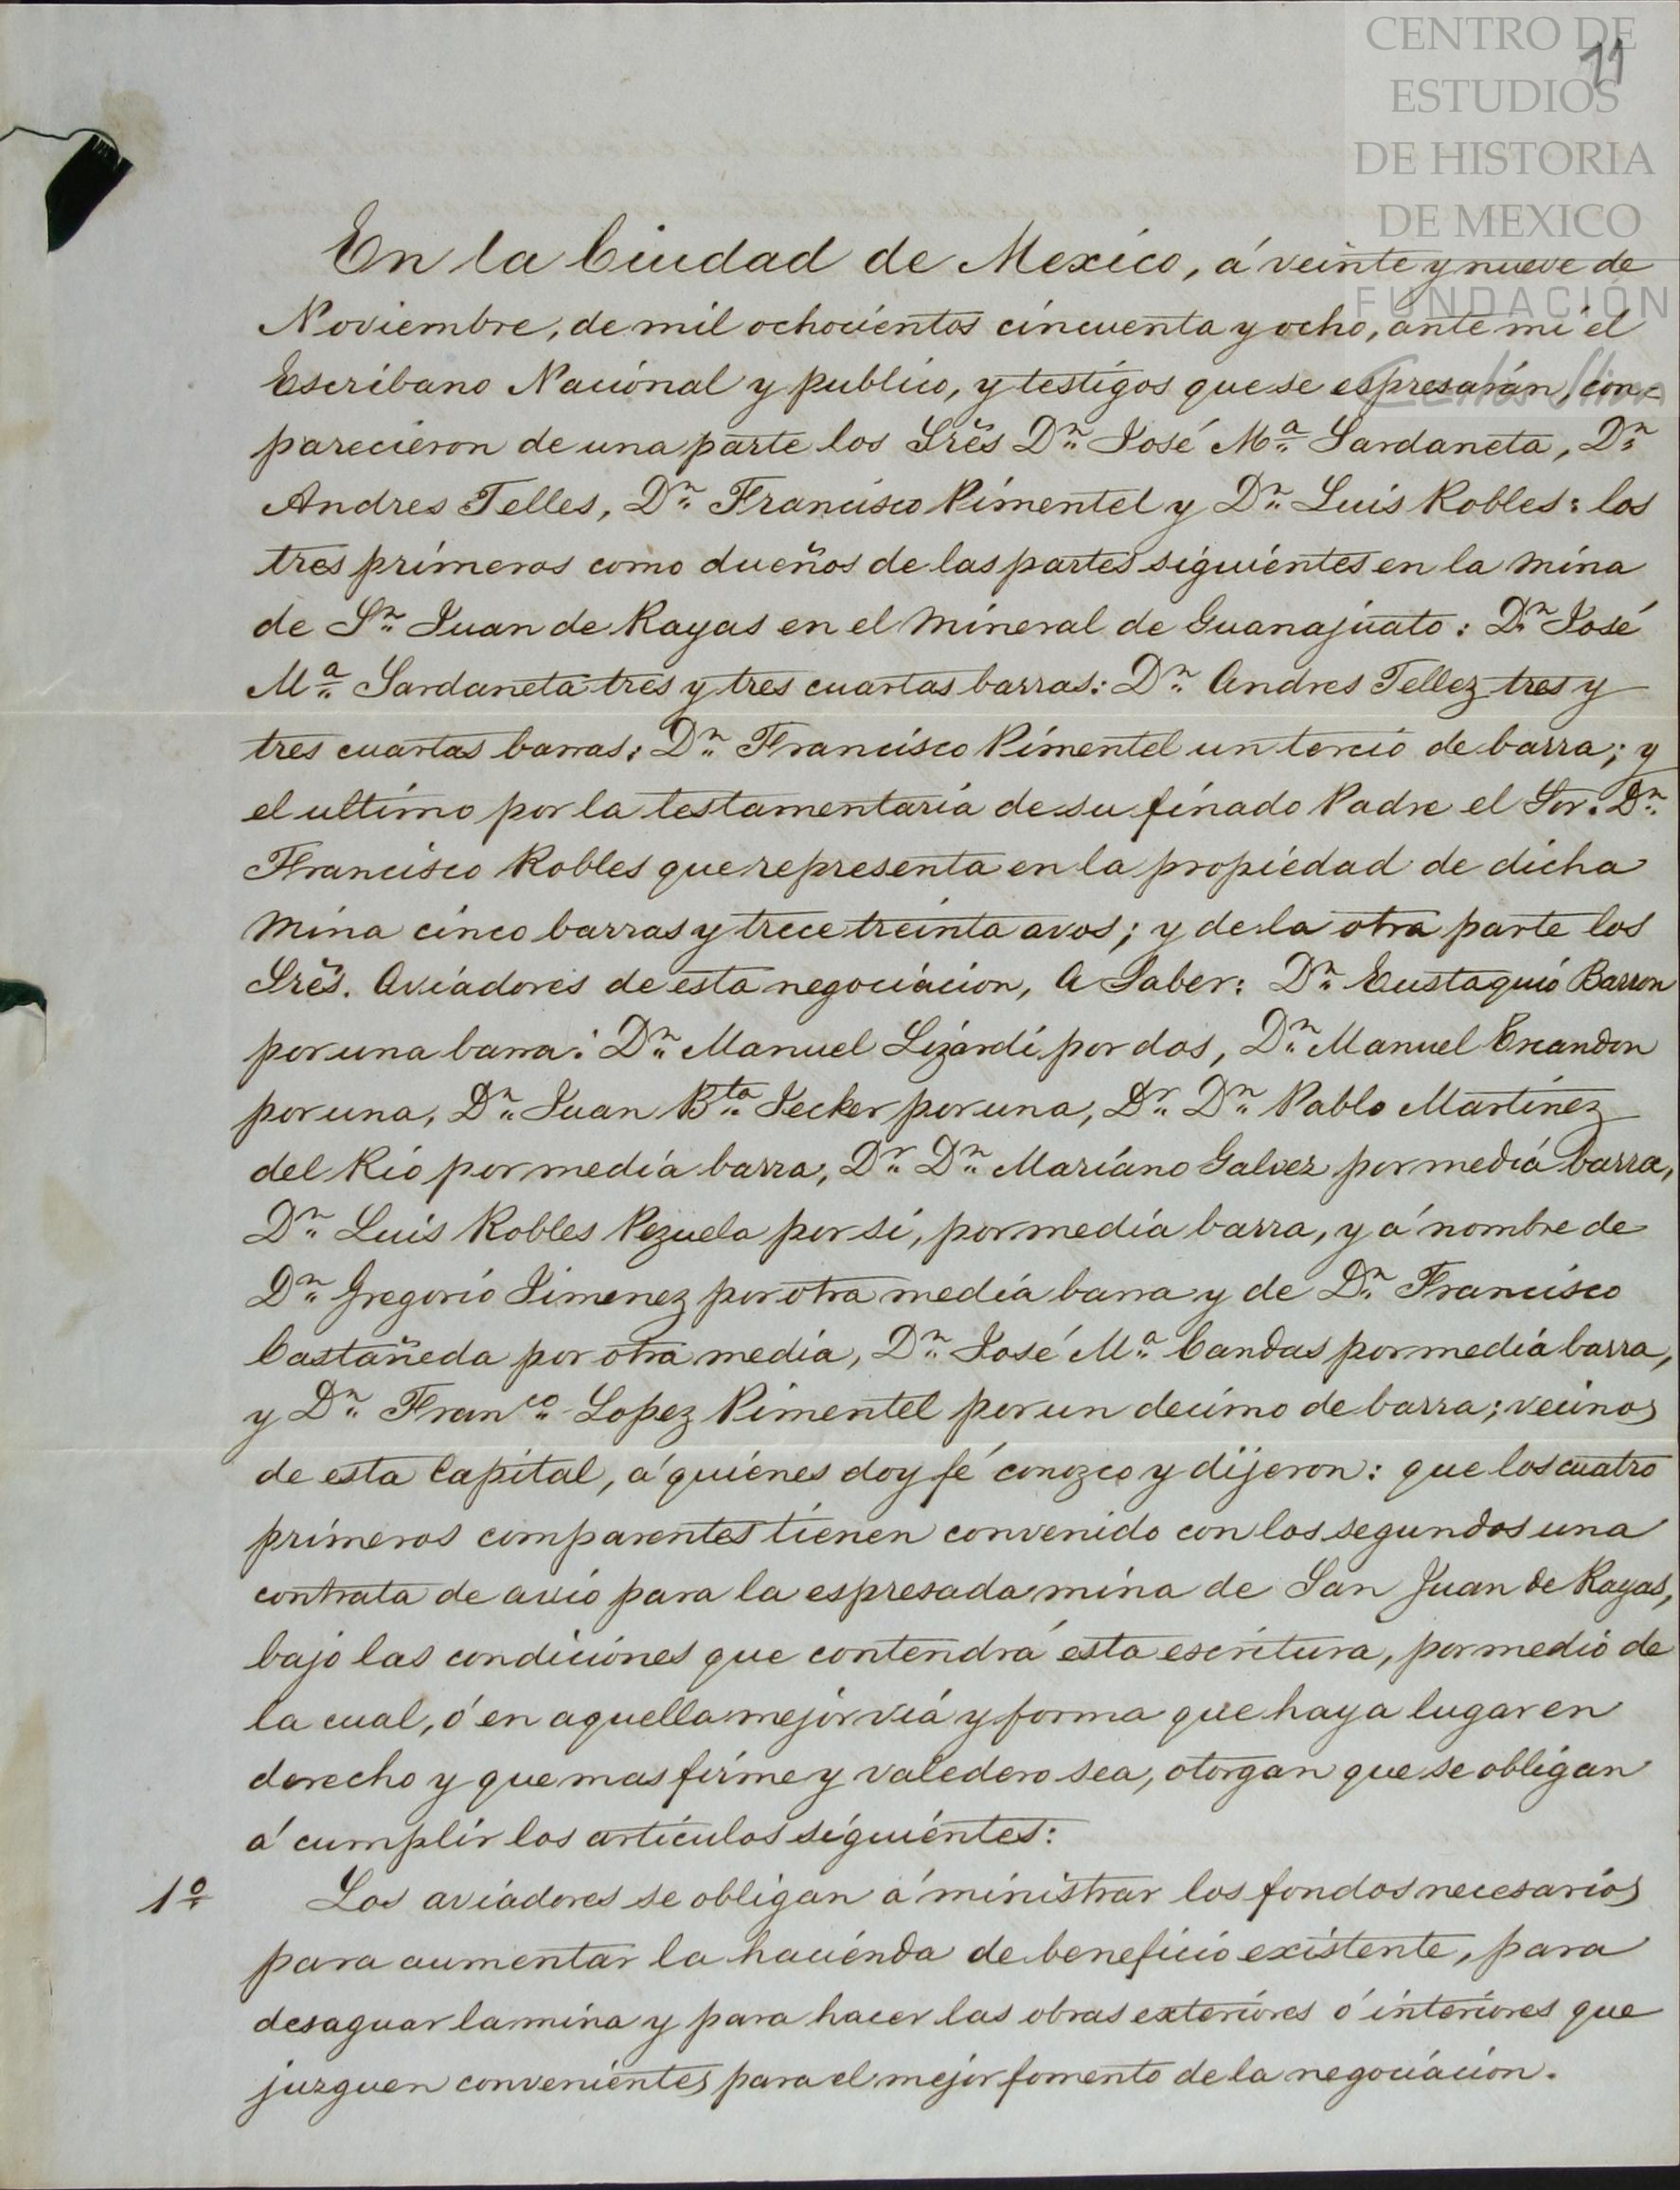 CENTRO DE
ESTUDIOS
DE HISTORIA
DE MEXICO
FUNDACIÓN
Carlos Slim
11
En la Ciudad de Mexico, á veinte y nueve de
Noviembre, de mil ochocientos cincuenta y ocho, ante mi el
Escribano Nacional y publico, y testigos que se espresarán, com-
parecieron de una parte los Srēs Dn. José Ma. Sardaneta, Dn.
Andres Telles, Dn. Francisco Pimentel y Dn. Luis Robles: los
tres primeros como dueños de las partes siguientes en la mina
de Sn. Juan de Rayas en el Mineral de Guanajuato: Dn. José
Ma. Sardaneta tres y tres cuartas barras: Dn. Andres Tellez tres y
tres cuartas barras: Dn. Francisco Pimentel un tercio de barra; y
el ultimo por la testamentaria de su finado Padre el Sor. Dn.
Francisco Robles que representa en la propiedad de dicha
Mina cinco barras y trece treinta avos; y de la otra parte los
Srēs. Aviadores de esta negociacion, A Saber: Dn. Eustaquio Barron
por una barra: Dn. Manuel Lizardi por dos, Dn. Manuel Escandon
por una, Dn. Juan Bta. Jecker por una, Dr. Dn. Pablo Martinez
del Rio por media barra, Dr. Dn. Mariano Galvez por media barra,
Dn. Luis Robles Pezuela por si, por media barra, y á nombre de
Dn. Gregorio Jimenez por otra media barra y de Dn. Francisco
Castañeda por otra media, Dn. José Ma. Candas por media barra,
y Dn. Franco. Lopez Pimentel por un decimo de barra; vecinos
de esta Capital, á quienes doy fé conozco y dijeron: que los cuatro
primeros comparentes tienen convenido con los segundos una
contrata de avio para la espresada mina de San Juan de Rayas,
bajo las condiciones que contendrá esta escritura, por medio de
la cual, ó en aquella mejor via y forma que haya lugar en
derecho y que mas firme y valedero sea, otorgan que se obligan
á cumplir los articulos siguientes:
1o. Los aviadores se obligan á ministrar los fondos necesarios
para aumentar la hacienda de beneficio existente, para
desaguar la mina y para hacer las obras exteriores ó interiores que
juzguen convenientes para el mejor fomento de la negociacion.